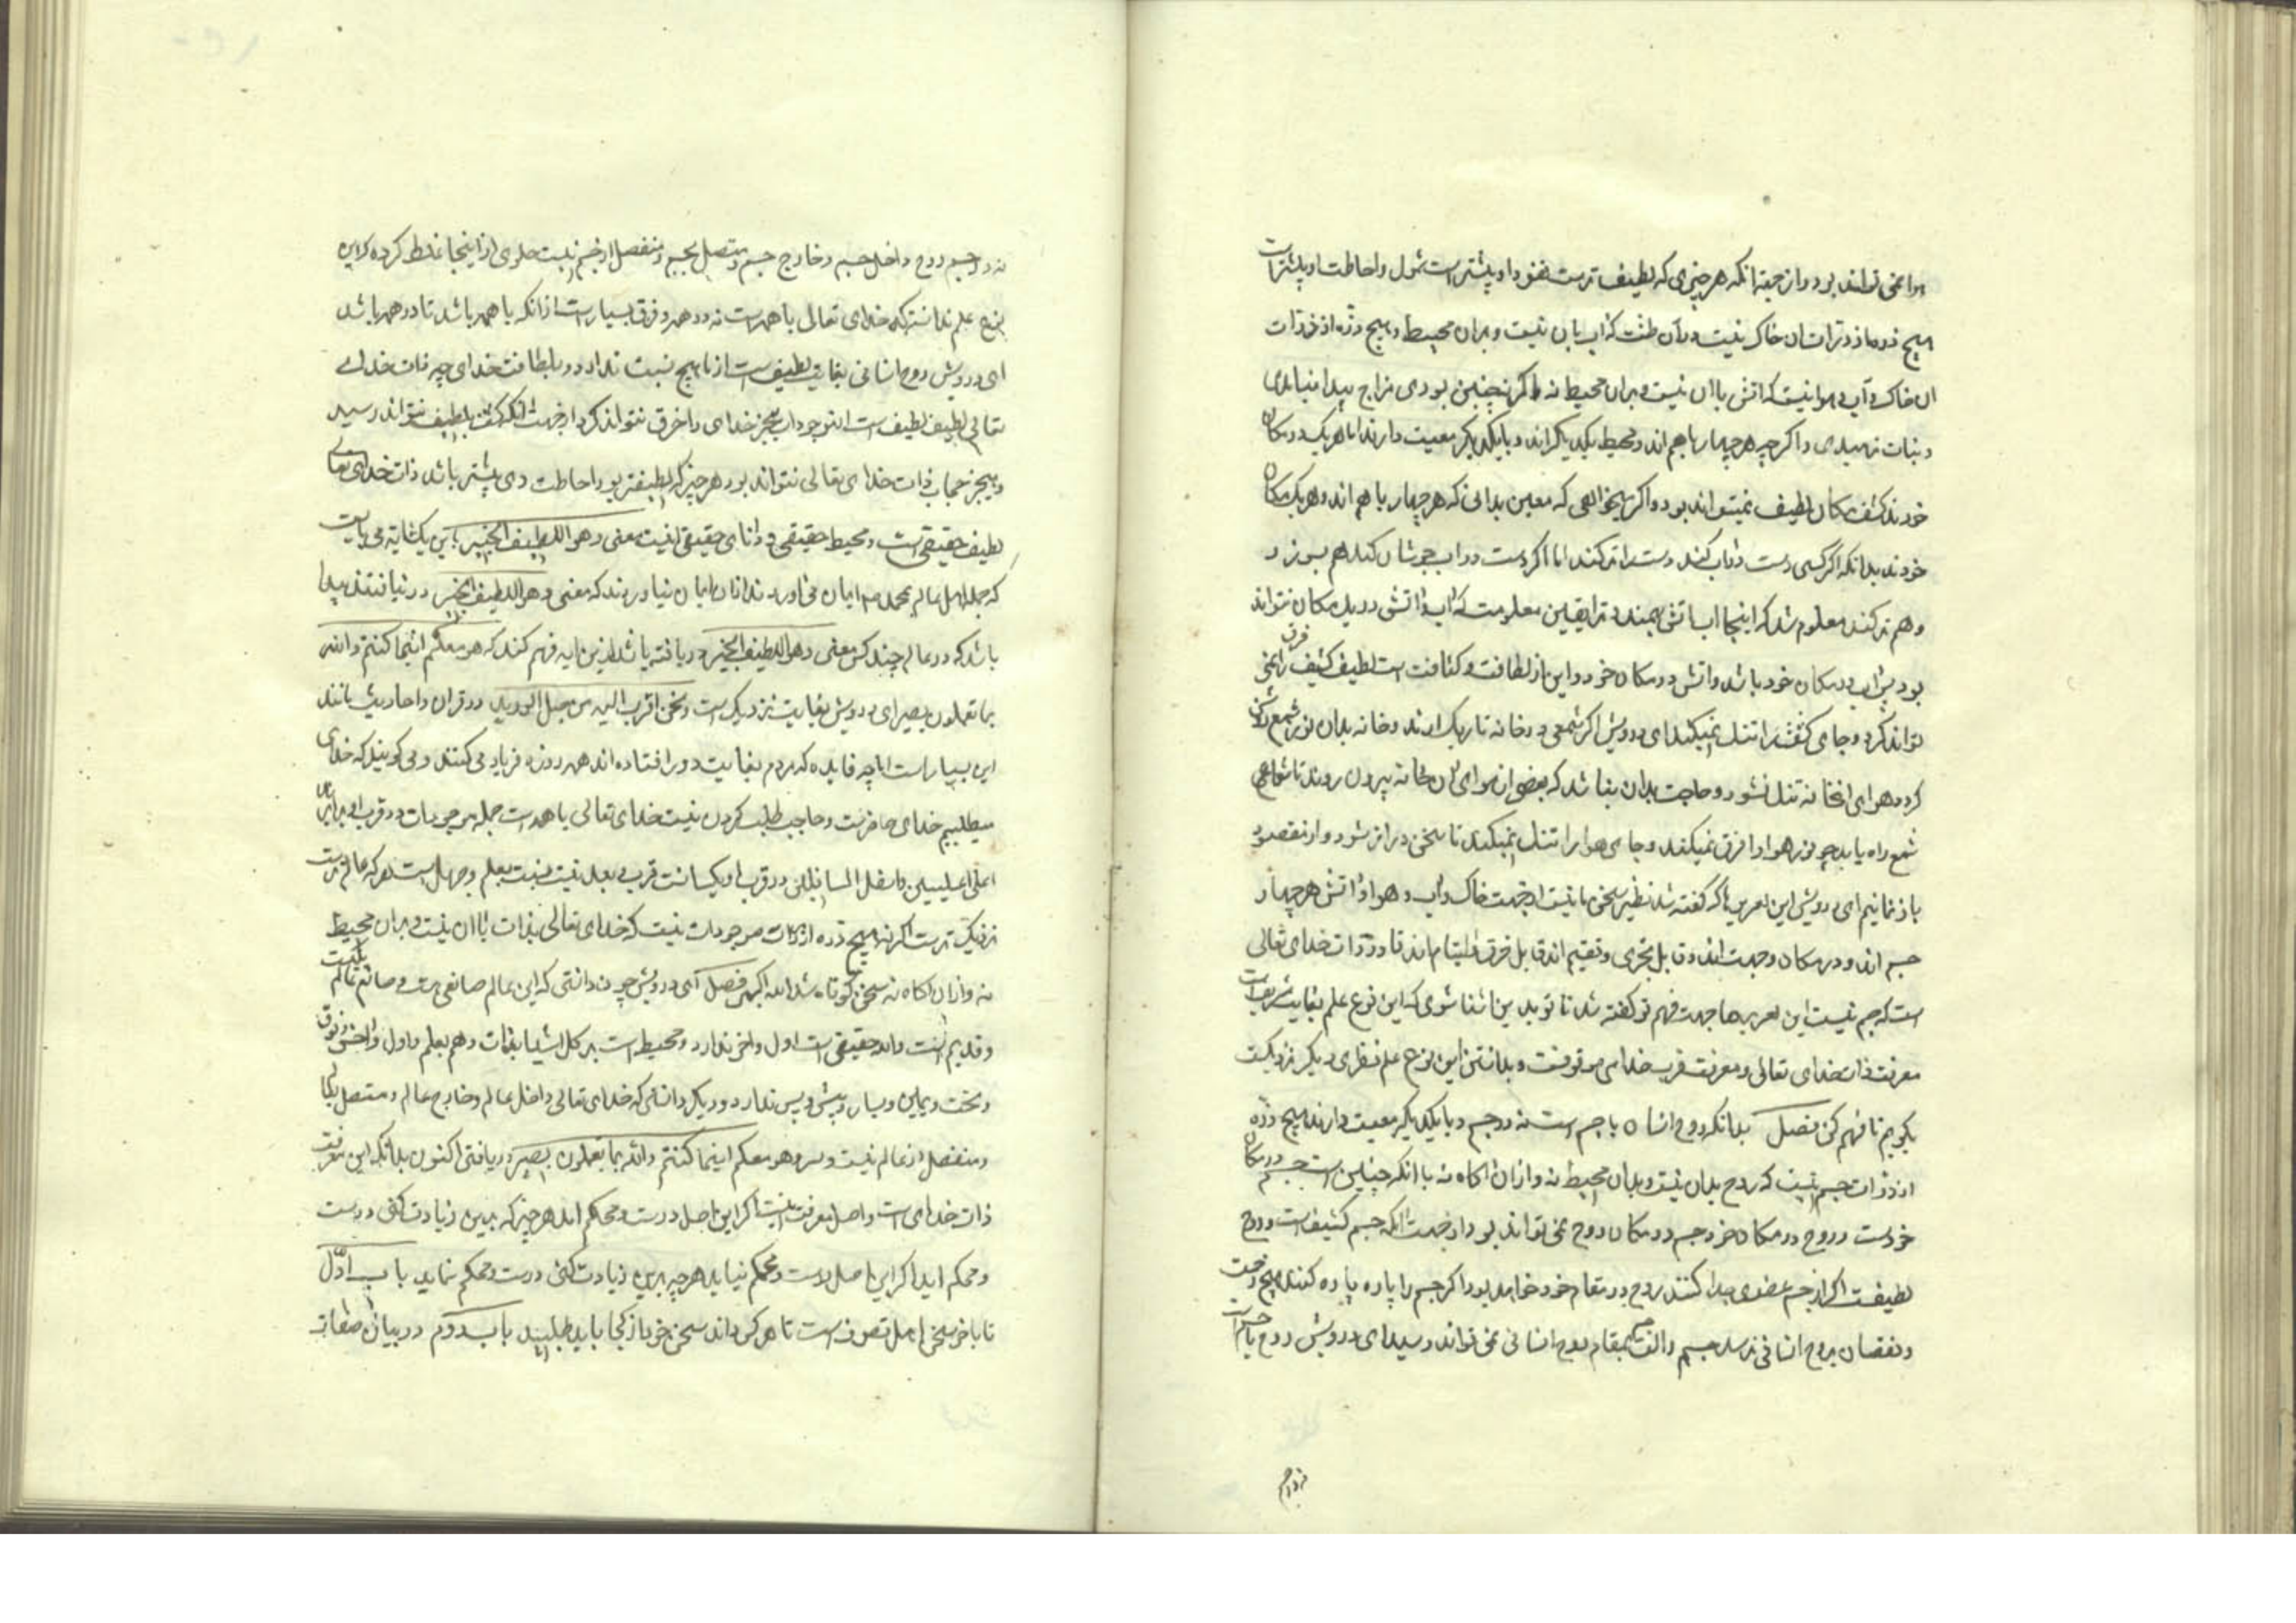 هوا نمی تواند بود و از جهة انکه هر چیزی که لطیف ترست نفوذ او پیشترست شمول و احاطت او پیشترست
هیچ ذره از ذرات ان خاک نیست در ان طشت که اب با ان نیست و بران محیط و هیچ ذره از ذرات
ان خاک و آب و هوا نیست که اتش با ان نیست و بران محیط نه و اکر نچنین بودی مزاج پیدا نیامدی
و نبات نرسیدی و اکر چه هر چهار با هم اند و محیط یکدیکر اند و با یکدیکر معیت دارند اما هر یک در مکان
خودند کثیف مکان لطیف نمیتواند بود و اکر میخواهی که معین بدانی که هر چهار با هم اند و هر یک در مکان
خودند بدانکه اکر کسی دست در اب کند دست را تر کند اما اکر دست در اب جوشان کند هم بسوزد
و هم تر کند معلوم شد که اینجا اب با اتش بهمند و ترا یقین معلومست که اب و اتش در یک مکان نتواند
بود پس اب در مکان خود باشد و اتش در مکان خود و این از لطافت و کثافت است لطیف کثیف را خرق نمی
تواند کرد و جای کثیف را تنک نمیکند ای درویش اکر شمعی در خانه تاریک ارند و خانه بدان نور شمع روشن
کردد هوای انخانه تنک نشود و حاجت بدان نباشد که بعضی از هوای ان خانه بیرون روند تا شعاع
شمع راه یابد چو نور هوا را خرق نمیکند و جای هوا را تنک نمیکند تا سخن دراز نشود و از مقصود
باز نمانیم ای درویش این تعریفها که کفته شد نظیر سخن ما نیست از جهت خاک و اب و هوا و اتش هر چهار
جسم اند و در مکان و جهت اند و قابل تجزی و تقسیم اند قابل خرق و التیام اند تا در ذات خدای تعالی
است که جسم نیست این تعریفها جهت فهم تو کفته شد تا تو بدین اشنا شوی که این نوع علم بغایت شریف است
معرفت ذات خدای تعالی و معرفت قرب خدای موقوفست و بدانستن این نوع علم نظری دیکر نزدیکتر
بکویم تا فهم کنی فصل بدانکه روح انسان با جسم است نه در جسم و با یکدیکر معیت دارند هیچ ذره
از ذرات جسم نیست که روح بدان نیست و بدان محیط نه و از ان اکاه نه با انکه چنین است جسم در مکان
خودست و روح در مکان خود جسم در مکان روح نمی تواند بود از جهت انکه جسم کثیف است و روح
لطیفست اکر از جسم عضوی جدا کنند روح در مقام خود خواهد بود اکر جسم را پاره پاره کنند هیچ زحمت
و نقصان بروح انسانی نرسد جسم و الت جسم بمقام روح انسانی نمی تواند رسید ای درویش روح با جسم است
نه در جسم روح داخل جسم و خارج جسم و متصل بجسم و منفصل از جسم نیست حلولی از اینجا غلط کرده که این
نوع علم ندانستند که خدای تعالی با همه است نه در همه و فرق بسیارست از انکه با همه باشد تا در همه باشد
ای درویش روح انسانی بغایت لطیف است از ما هیچ نسبت ندارد در بلطافت خدای چه ذات خدای
تعالی لطیف لطیف است از موجودات هیچیز خدای را خرق نتواند کرد از جهت انکه کثیف بلطیف نتواند رسید
و هیچیز حجاب ذات خدای تعالی نتواند بود هر چیز که لطیفتر بود احاطت وی پیشتر باشد ذات خدای تعالی
لطیف حقیقی است و محیط حقیقی و دانای حقیقی اینست معنی و هو اللطیف الخبیر این یکتا ایه می بایست
که جمله اهل عالم بمحمد صم ایمان می اوردند از ان ایمان نیاوردند که معنی و هو اللطیف الخبیر در نیافتند پیدا
باشد که در عالم چند کس معنی و هو اللطیف الخبیر دریافته باشد از این ایه فهم کنند که هو معکم اینما کنتم و الله
بما تعملون بصیر ای درویش بغایت نزدیک است و نحن اقرب الیه من حبل الورید در قران و احادیث مانند
این بسیار است اما چه فایده که مردم بغایت دور افتاده اند همه روزه فریاد می کنند و می کویند که خدای
میطلبیم خدای حاضرست و حاجب طلب کردن نیست خدای تعالی با همه است جمله موجودات در قرب او برابراند
اعلی اعلیین و اسفل السافلین در قرب او یکسانست قرب و بعد نیست نسبت بعلم و جهل است هر که عالم ترست
نزدیک ترست اکر نه هیچ ذره از ذرات موجودات نیست که خدای تعالی بذات با ان نیست و بران محیط
نه و از ان اکاه نه سخن کوتاه شد الله اکبر فصل ای درویش چون دانستی که این عالم صانعی هست و صانع عالم یکیست
و قدیم است و احد حقیقی است اول و اخر ندارد و محیط است بر کل اشیا بذات و هم بعلم و اول و اخر و فوق
و تحت و یمین و یسار و پیش و پس ندارد و دیکر دانستی که خدای تعالی داخل عالم و خارج عالم و متصل بعالم
و منفصل از عالم نیست و سر و هو معکم اینما کنتم و الله بما تعملون بصیر دریافتی اکنون بدانکه این معرفت
ذات خدای است و اصل معرفت اینست اکر این اصل درست و محکم اید هر چیز که برین زیادت کنی درست
و محکم اید اکر این اصل درست و محکم نیاید هر چه برین زیادت کنی درست و محکم نیاید باب اوّل
تا باخر سخن اهل تصوف است تا هر کس داند سخن خود از کجا باید طلبید باب دوم در بیان صفات